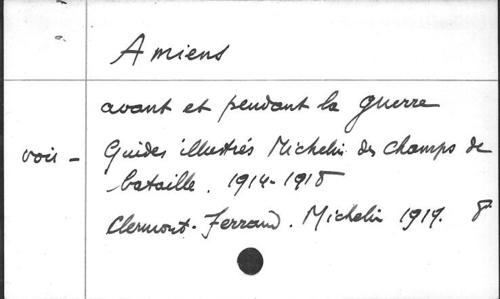 Amiens
avant et pendant la guerre
voir - Guides illustrés Michelin des champs de
bataille. 1914-1918
Clermont-Ferrand. Michelin 1919. 8°